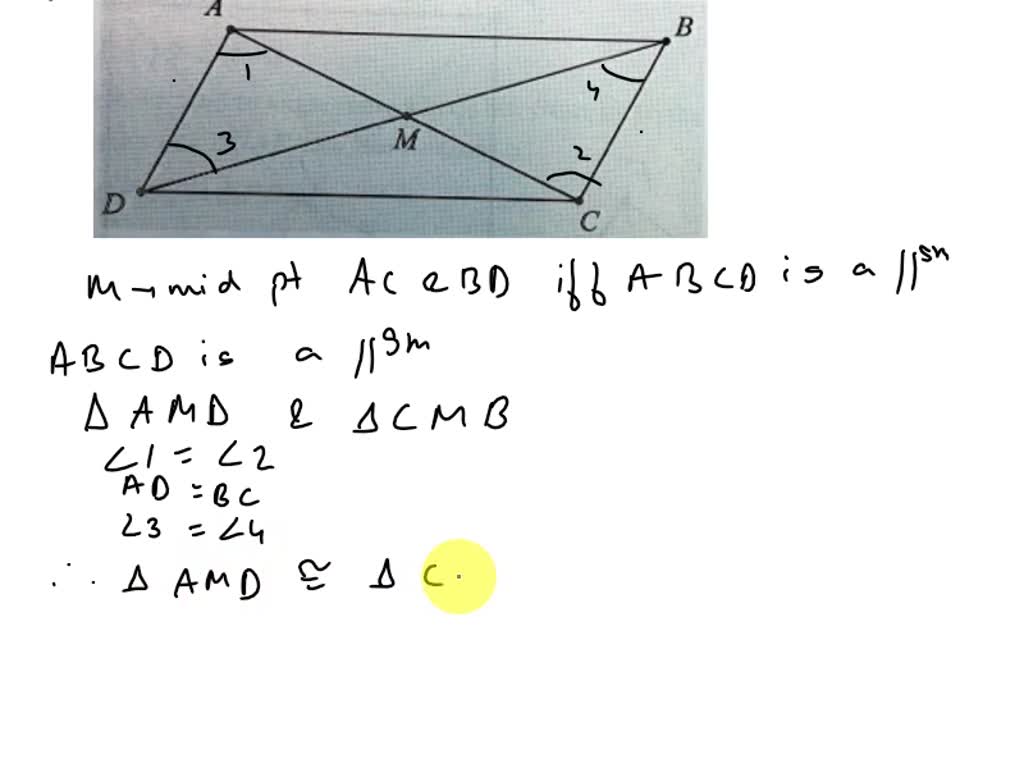 A
B
1
4
3
M
2
D
C
M → mid pt AC & BD iff ABCD is a ||gm
ABCD is a ||gm
Δ AMD & Δ CMB
∠1 = ∠2
AD = BC
∠3 = ∠4
∴ Δ AMD ≅ Δ C